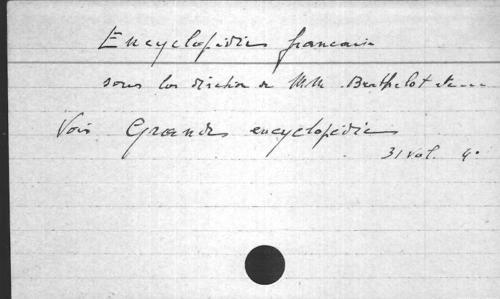 Encyclopédie francaise
sous la direction de MM. Berthelot etc...
Voir Grande encyclopédie
31 vol. 4°